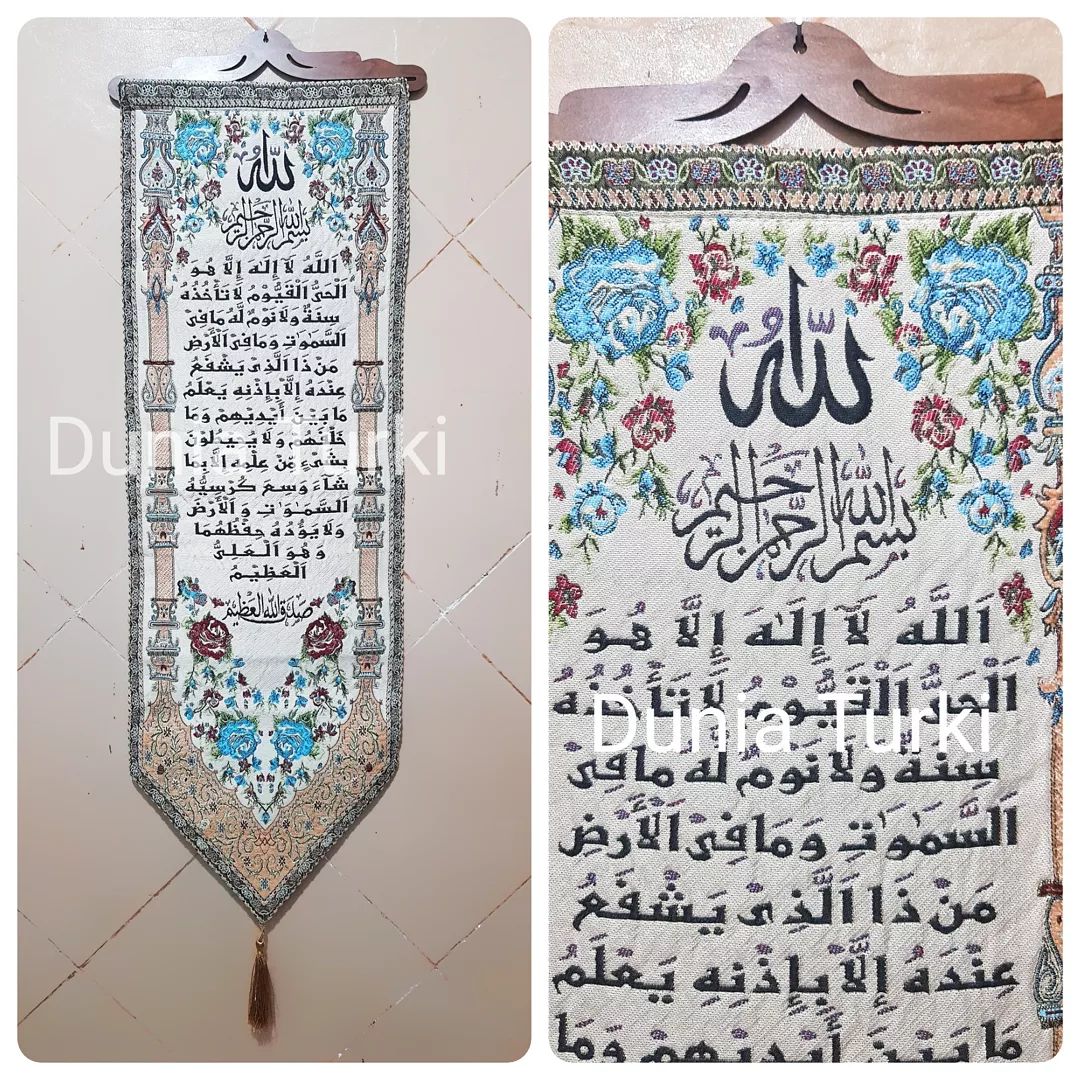 الله
بسم الله الرحمن الرحيم
اَللّٰهُ لَآ اِلٰهَ اِلَّا هُوَ
اَلْحَيُّ الْقَيُّوْمُ لَا تَأْخُذُهُ
سِنَةٌ وَلَا نَوْمٌ لَهُ مَا فِي
السَّمٰوٰتِ وَمَا فِي الْأَرْضِ
مَنْ ذَا الَّذِي يَشْفَعُ
عِنْدَهُ إِلَّا بِإِذْنِهِ يَعْلَمُ
مَا بَيْنَ أَيْدِيْهِمْ وَمَا
خَلْفَهُمْ وَلَا يُحِيْطُوْنَ
بِشَيْءٍ مِّنْ عِلْمِهِ إِلَّا بِمَا
شَآءَ وَسِعَ كُرْسِيُّهُ
السَّمٰوٰتِ وَالْأَرْضَ
وَلَا يَؤُدُهُ حِفْظُهُمَا
وَهُوَ الْعَلِيُّ
الْعَظِيْمُ
صدق الله العظيم
Dunia Turki
الله
بسم الله الرحمن الرحيم
اَللّٰهُ لَآ اِلٰهَ اِلَّا هُوَ
اَلْحَيُّ الْقَيُّوْمُ لَا تَأْخُذُهُ
سِنَةٌ وَلَا نَوْمٌ لَهُ مَا فِي
السَّمٰوٰتِ وَمَا فِي الْأَرْضِ
مَنْ ذَا الَّذِي يَشْفَعُ
عِنْدَهُ إِلَّا بِإِذْنِهِ يَعْلَمُ
مَا بَيْنَ أَيْدِيْهِمْ وَمَا
Dunia Turki